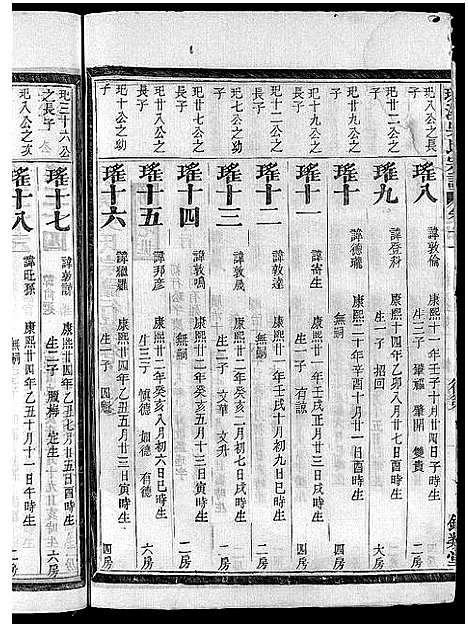 玘八公之長子
瑤八
諱敦倫
康熙十一年壬子十月廿四日子時生
生三子 肇福 肇開 雙貴
二房
玘廿二公之子
瑤九
諱登科
康熙十四年乙卯八月廿七日酉時生
生一子 招回
大房
玘廿九公之子
瑤十
諱德瓏
康熙二十年辛酉十月廿一日酉時生
無嗣
四房
玘十九公之子
瑤十一
諱寄生
康熙廿一年壬戌正月廿三日戌時生
生一子 有諒
六房
玘八公之次子
瑤十二
諱敦達
康熙廿一年壬戌十月初九日巳時生
無嗣
二房
玘七公之幼子
瑤十三
諱敦晟
康熙廿二年癸亥二月初七日戌時生
生二子 文華 文升
二房
玘廿公之長子
瑤十四
諱敦鳴
康熙廿二年癸亥五月十三日寅時生
無嗣
二房
玘廿八公之長子
瑤十五
諱邦彥
康熙廿二年癸亥六月初三日亥時生
生三子 慎德 如德 有德
六房
玘十公之幼子
瑤十六
諱獵羅
康熙廿四年乙丑五月廿三日寅時生
生一子
四房
玘三十六公之長子
瑤十七
康熙廿四年乙丑七月廿五日酉時生
生二子 服梅 定生
六房
玘八公之幼
瑤十八
諱旺孫
康熙廿四年乙丑十月十一日午時生
無嗣
二房